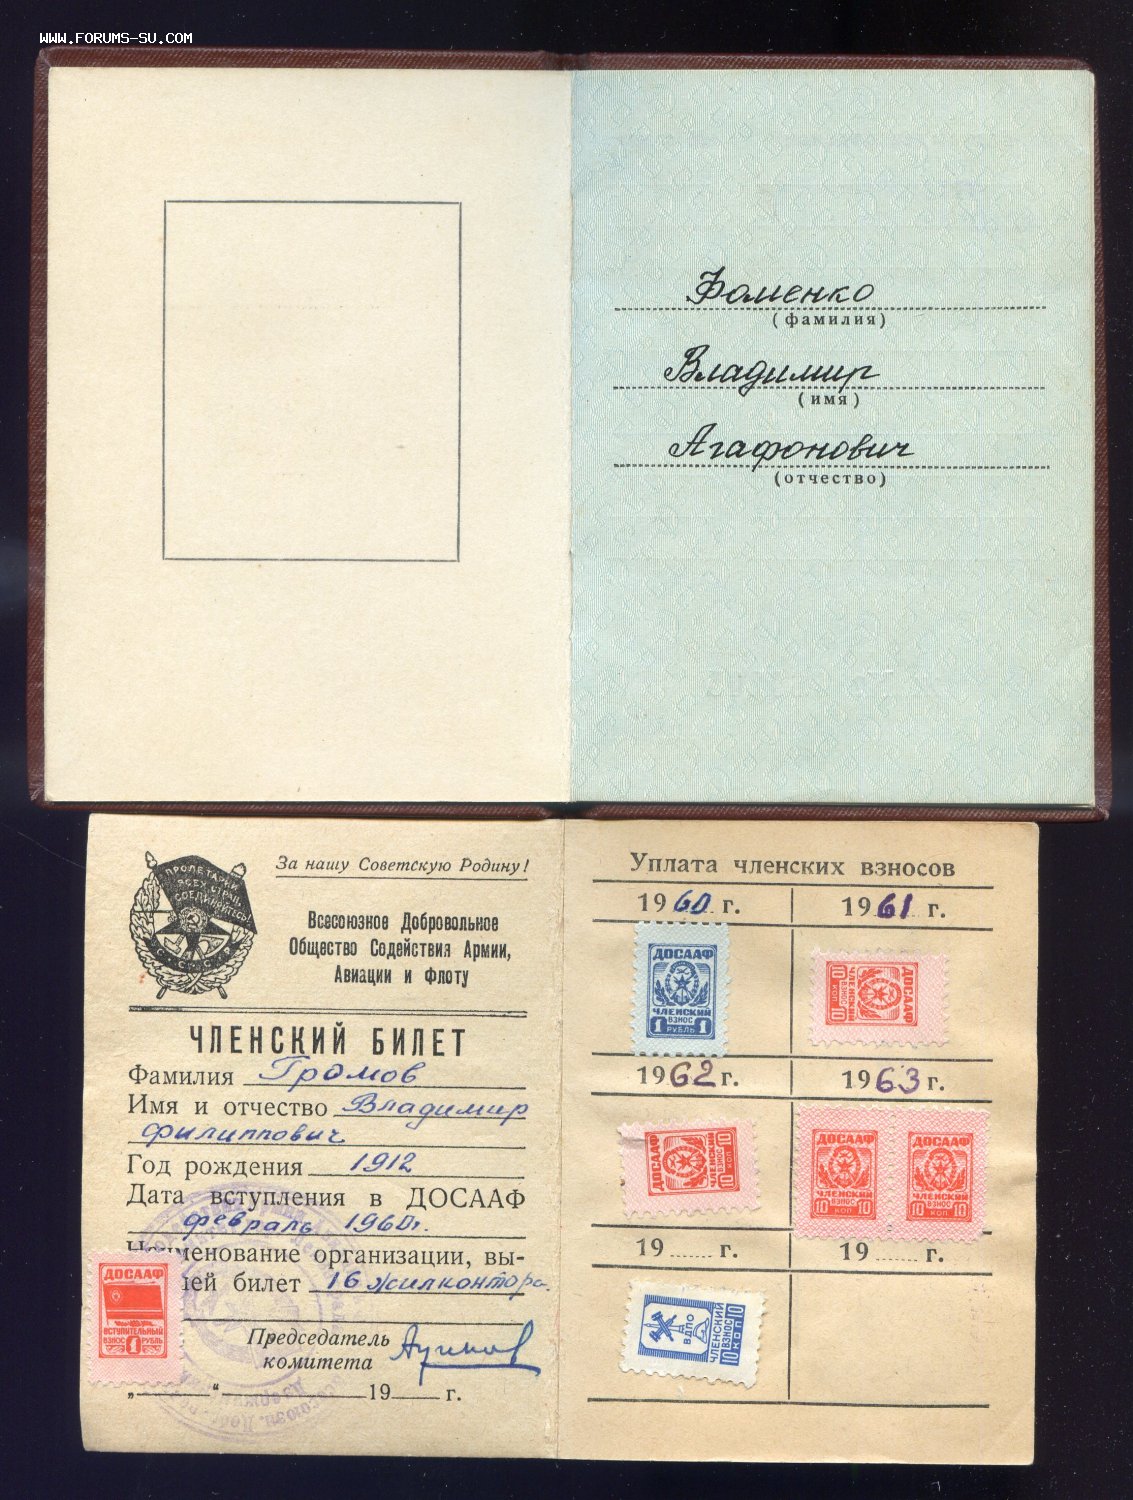 WWW.FORUMS-SU.COM
Фоменко
(фамилия)
Владимир
(имя)
Агафонович
(отчество)
ПРОЛЕТАРИИ
ВСЕХ СТРАН
СОЕДИНЯЙТЕСЬ!
СССР
За нашу Советскую Родину!
Всесоюзное Добровольное
Общество Содействия Армии,
Авиации и Флоту
ЧЛЕНСКИЙ БИЛЕТ
Фамилия Громов
Имя и отчество Владимир
Филиппович
Год рождения 1912
Дата вступления в ДОСААФ
февраль 1960г.
Наименование организации, вы-
шей билет 16 жилконтора
Председатель
комитета
„ “ 19 г.
ДОСААФ
ВСТУПИТЕЛЬНЫЙ
ВЗНОС 1 РУБЛЬ
Уплата членских взносов
1960 г. 1961 г.
ДОСААФ
ЧЛЕНСКИЙ
ВЗНОС
1 РУБЛЬ 1
ДОСААФ
ЧЛЕНСКИЙ
ВЗНОС
10 КОП 10
1962 г. 1963 г.
ДОСААФ
ЧЛЕНСКИЙ
ВЗНОС
10 КОП 10
ДОСААФ
ЧЛЕНСКИЙ
ВЗНОС
10 КОП 10
ДОСААФ
ЧЛЕНСКИЙ
ВЗНОС
10 КОП 10
19 г. 19 г.
ВДПО
ЧЛЕНСКИЙ
ВЗНОС
10 КОП 10